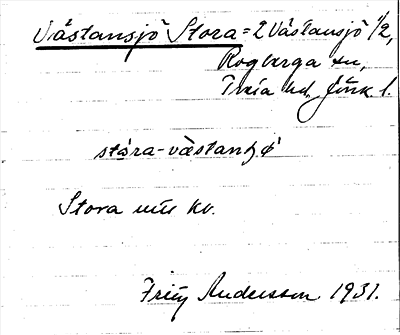 Västansjö Stora = 2 Västansjö 1/2,
Rogberga sn,
Tveta hd, Jönk. l.
stóra-vä̀stanʃø̀
Stora
Andersson 1931.